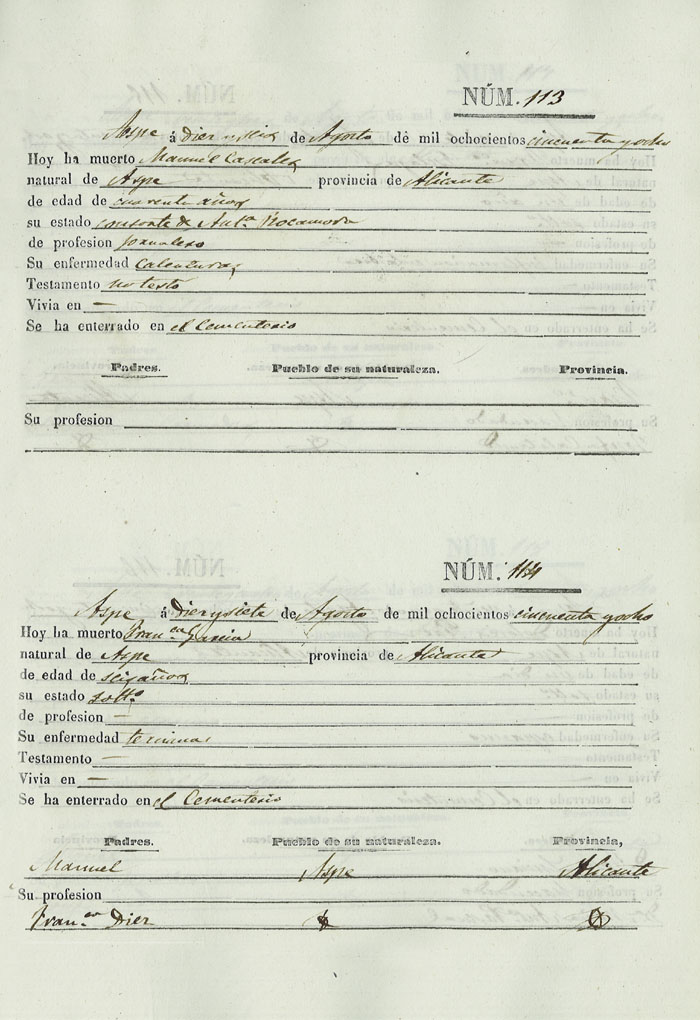 NÚM. 113
Aspe á diez y seis de Agosto de mil ochocientos cincuenta y ocho
Hoy ha muerto Manuel Cascales
natural de Aspe provincia de Alicante
de edad de cuarenta años
su estado consorte de Ant.ª Rocamora
de profesion jornalero
Su enfermedad calenturas
Testamento no testó
Vivia en —
Se ha enterrado en el Cementerio
Padres. Pueblo de su naturaleza. Provincia.
Su profesion
NÚM. 114
Aspe á Diez y siete de Agosto de mil ochocientos cincuenta y ocho
Hoy ha muerto Fran.ca Garcia
natural de Aspe provincia de Alicante
de edad de seis años
su estado solt.ª
de profesion —
Su enfermedad tercianas
Testamento —
Vivia en —
Se ha enterrado en el Cementerio
Padres. Pueblo de su naturaleza. Provincia,
Manuel Aspe Alicante
Su profesion
Fran.ca Diez